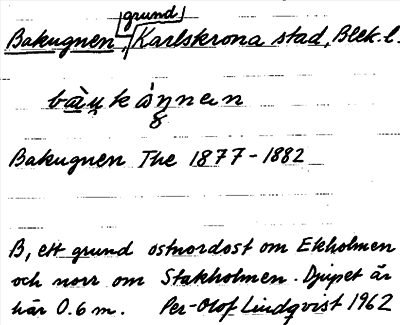 Bakugnen, grund, Karlskrona stad, Blek. l.
Bakugnen The 1877-1882
B, ett grund ostnordost om Ekholmen
och norr om Stakholmen. Djupet är
här 0.6 m. Per-Olof Lindqvist 1962